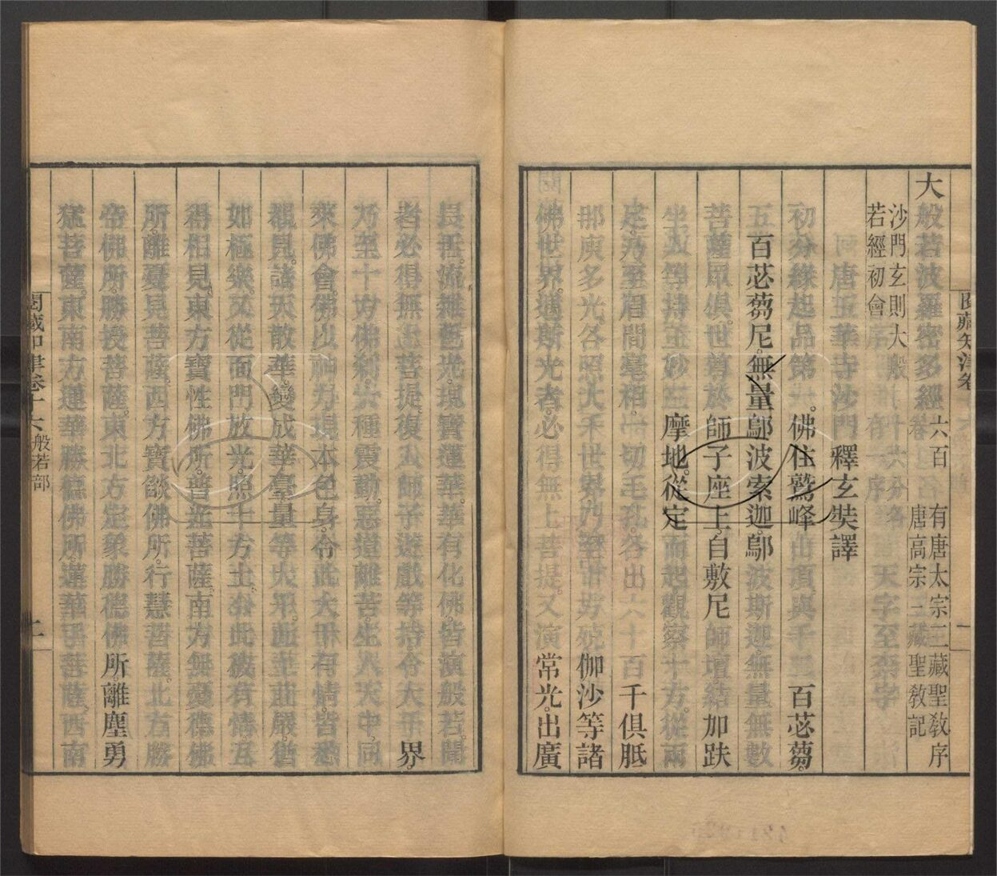 大般若波羅密多經 六百卷
有唐太宗三藏聖敎序
唐高宗三藏聖敎記
沙門玄則大般
若經初會
唐五華寺沙門釋玄奘譯
初分緣起品第一。佛住鷲峰山頂與千二百苾芻。
五百苾芻尼。無量鄔波索迦鄔波斯迦無量無數
菩薩眾俱。世尊於師子座上。自敷尼師壇結加趺
坐入等持王妙三摩地。從定而起觀察十方。從兩
足乃至眉間毫相。一切毛孔各出六十百千俱胝
那庾多光各照大千世界乃至十方殑伽沙等諸
佛世界。遇斯光者。必得無上菩提。又演常光。出廣
長舌。流雜色光。現寶蓮華。華有化佛。皆演般若。聞
者必得無上菩提。復入師子遊戲等持。令大千界。
乃至十方佛剎。六種震動。惡道離苦。生人天中。同
來佛會。佛以神力現本色身。令此大界有情皆悉
覩見。諸天散華。變成華臺。量等大界。莊嚴猶
如極樂。又從面門放光照十方土。令此彼有情互
得相見。東方寶性佛所。普光菩薩。南方無憂德佛
所離憂菩薩。西方寶燄佛所。行慧菩薩。北方勝
帝佛所勝授菩薩。東北方定象勝德佛所離塵勇
猛菩薩。東南方蓮華勝德佛所。蓮華手菩薩。西南
閱藏知津卷十六 般若部 二